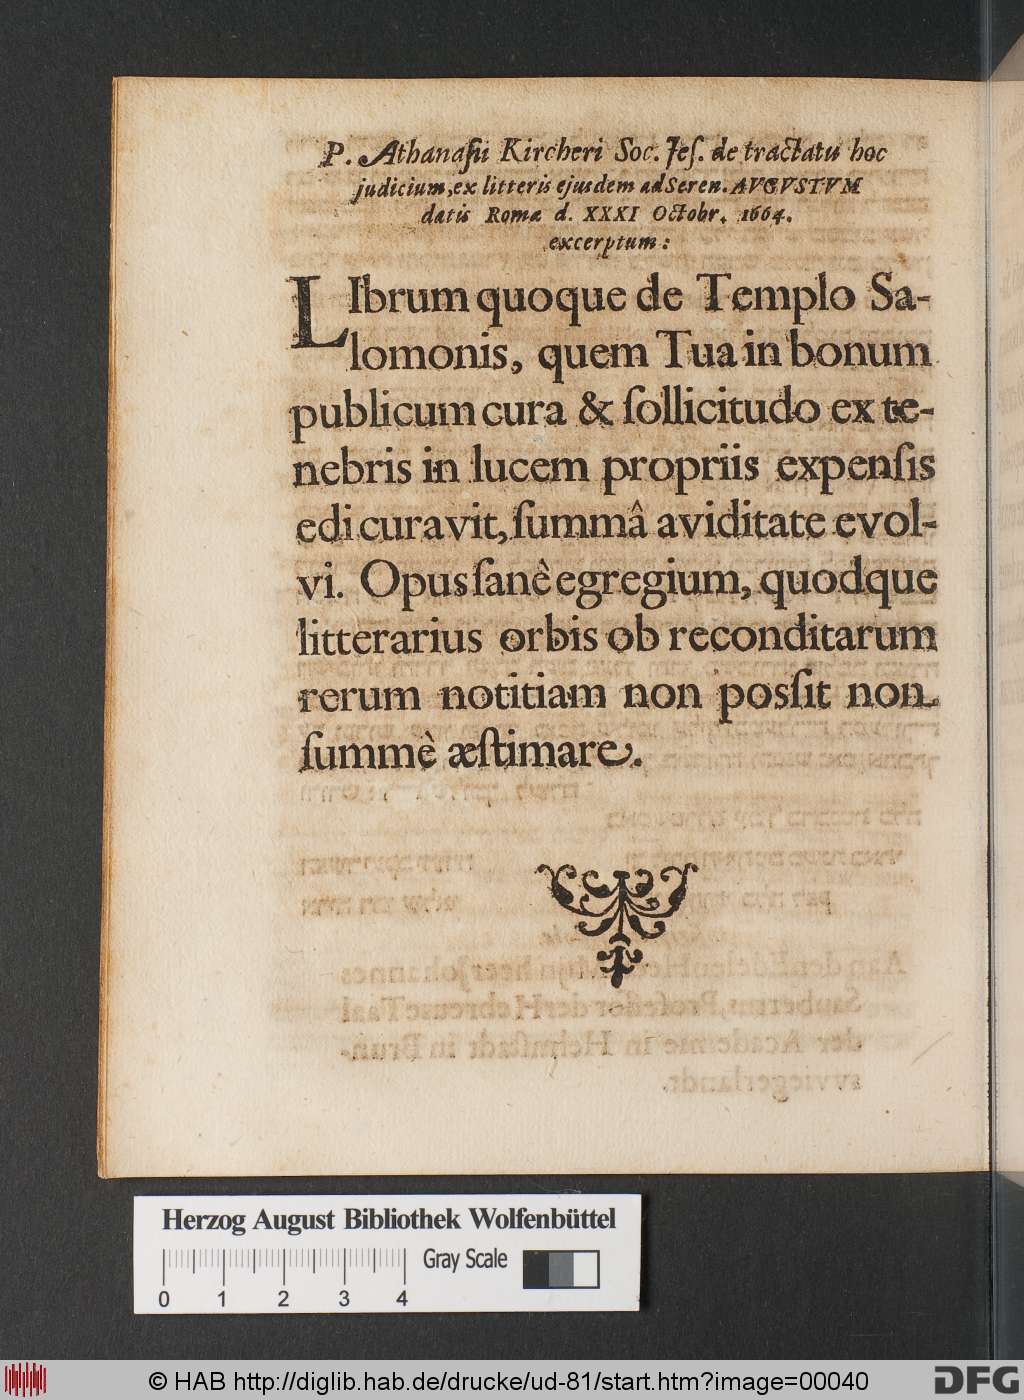 P. Athanasii Kircheri Soc. Jeſ. de tractatu hoc
judicium, ex litteris ejusdem ad Seren. AVGVSTVM
datis Romæ d. XXXI Octobr. 1664.
excerptum:
LIbrum quoque de Templo Sa-
lomonis, quem Tua in bonum
publicum cura & ſollicitudo ex te-
nebris in lucem propriis expenſis
edi curavit, ſummâ aviditate evol-
vi. Opus ſanè egregium, quodque
litterarius orbis ob reconditarum
rerum notitiam non posſit non
ſummè æſtimare.
Herzog August Bibliothek Wolfenbüttel
Gray Scale
0 1 2 3 4
© HAB http://diglib.hab.de/drucke/ud-81/start.htm?image=00040
DFG